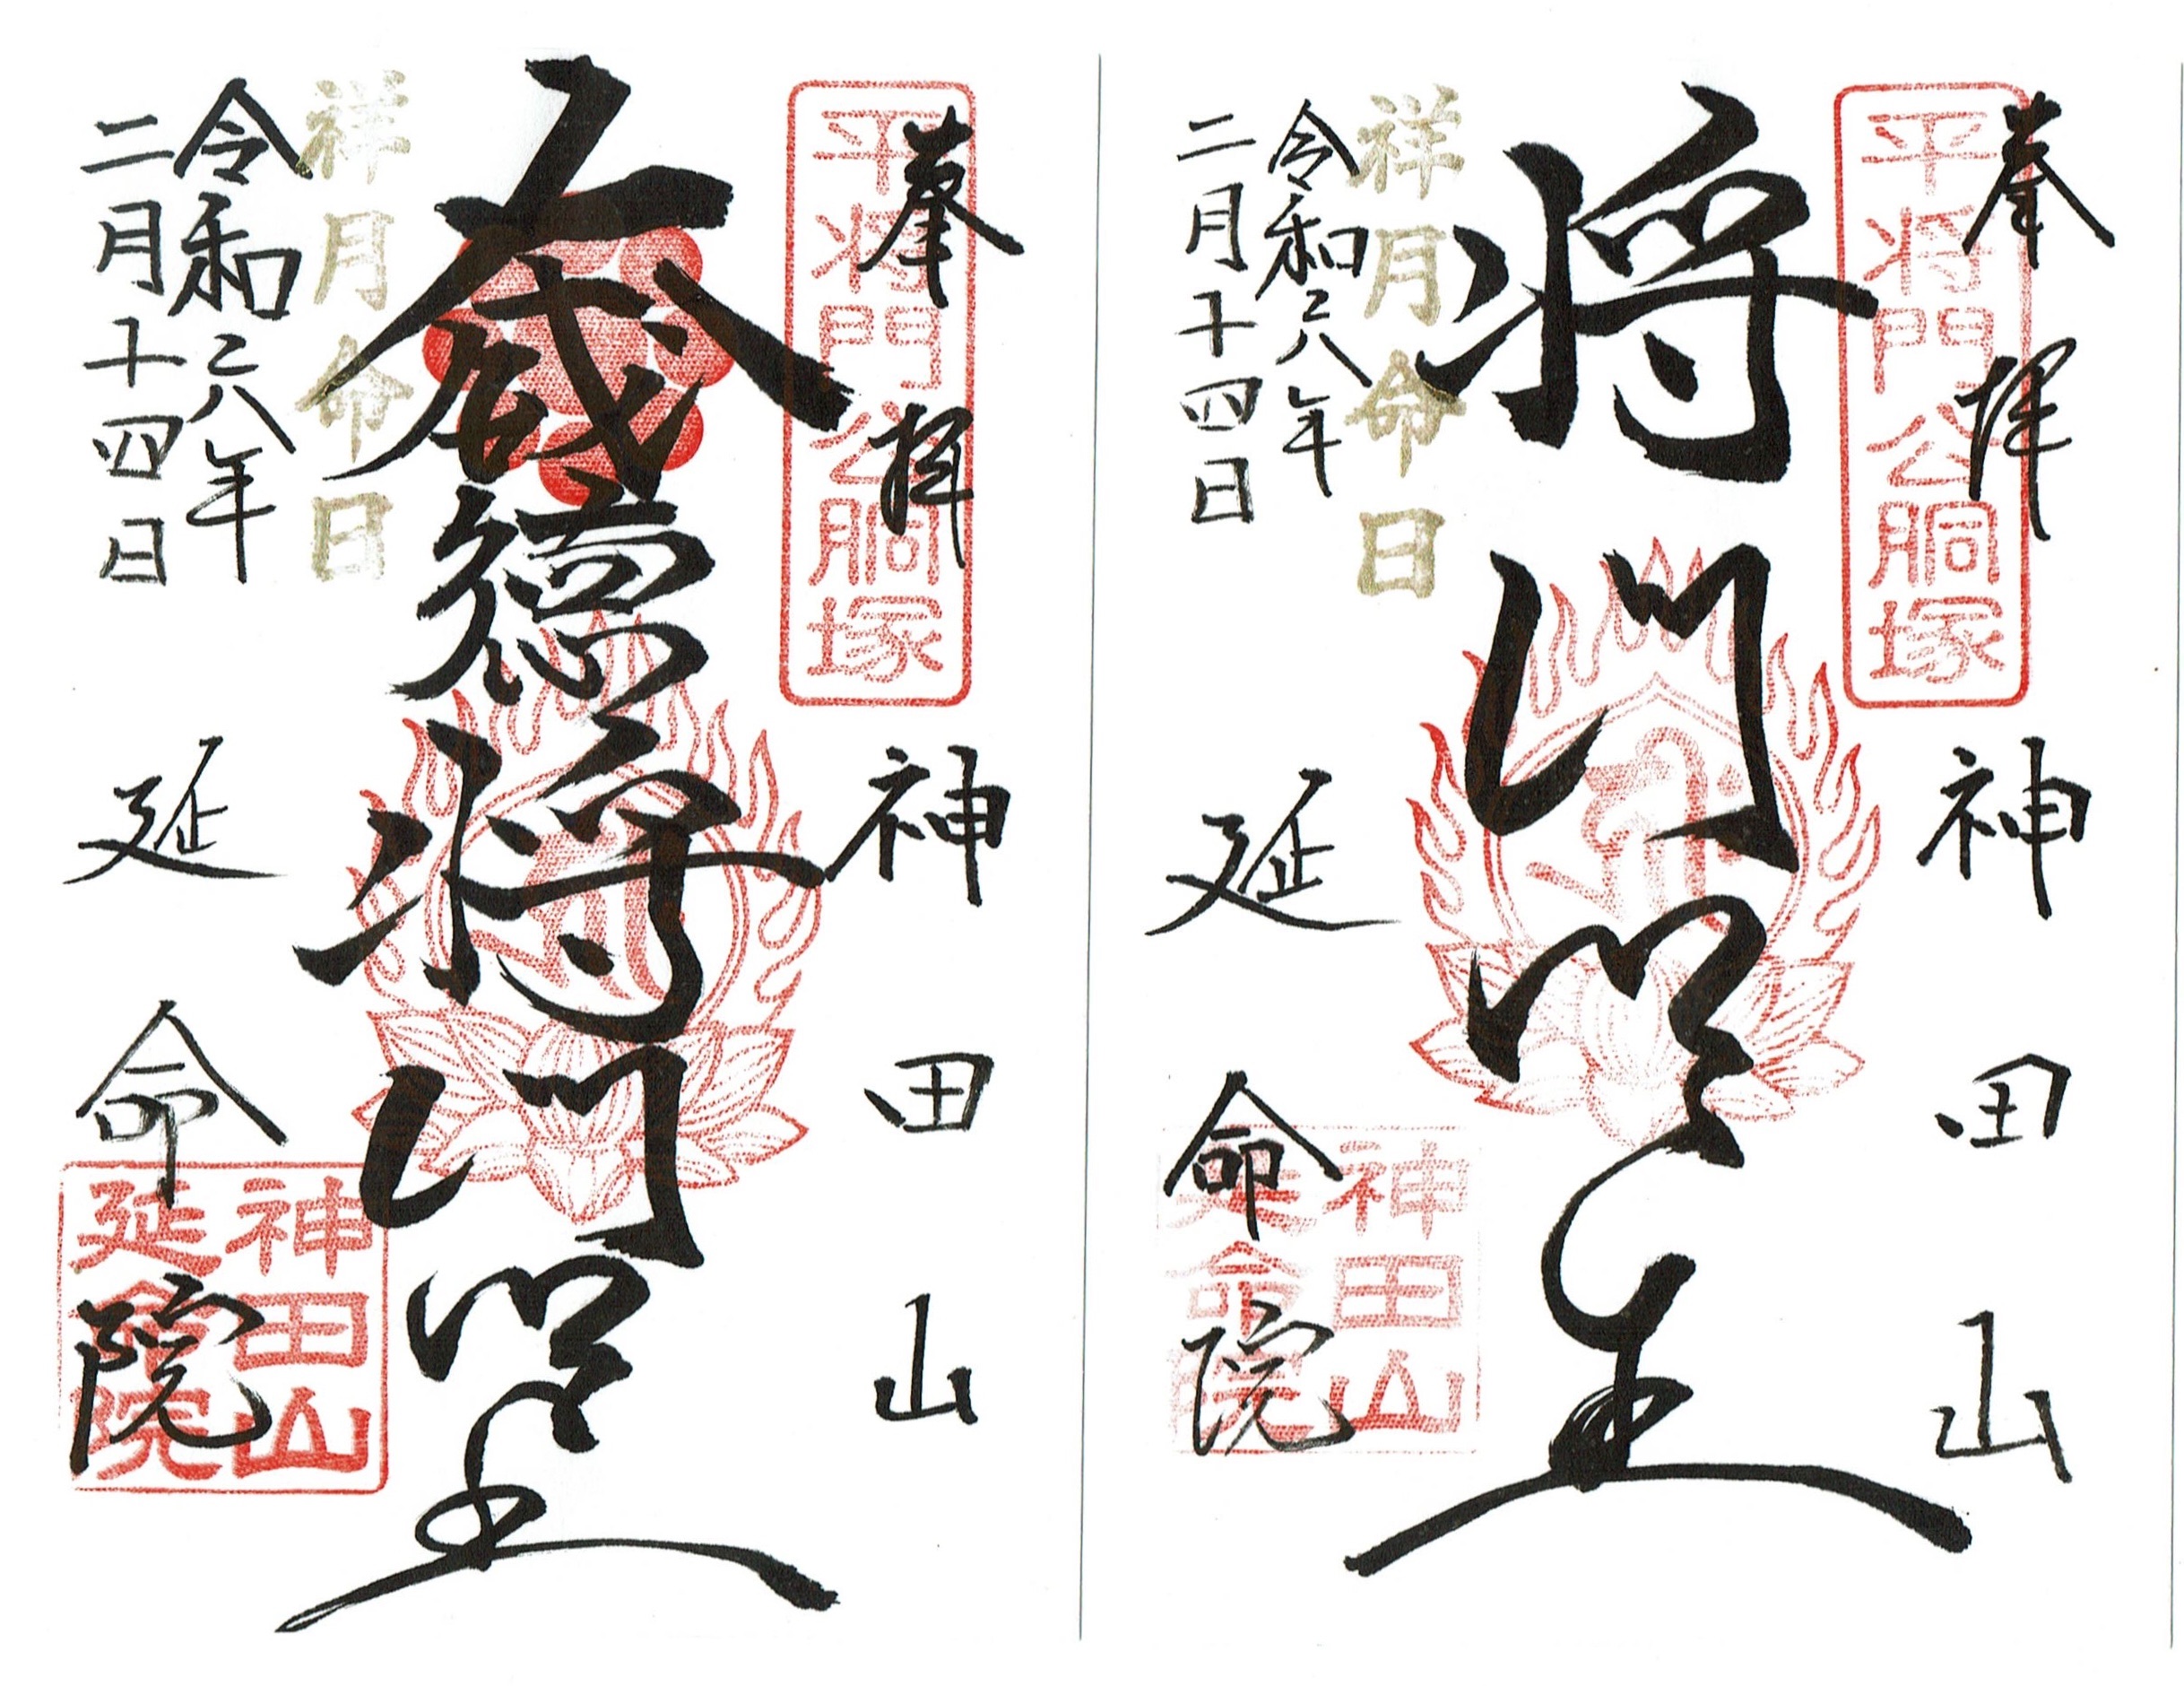 奉拝
平将門公胴塚
神田山
将門明王
祥月命日
令和六年
二月十四日
延命院
神田山
延命院
奉拝
平将門公胴塚
神田山
大威徳将門明王
祥月命日
令和六年
二月十四日
延命院
神田山
延命院